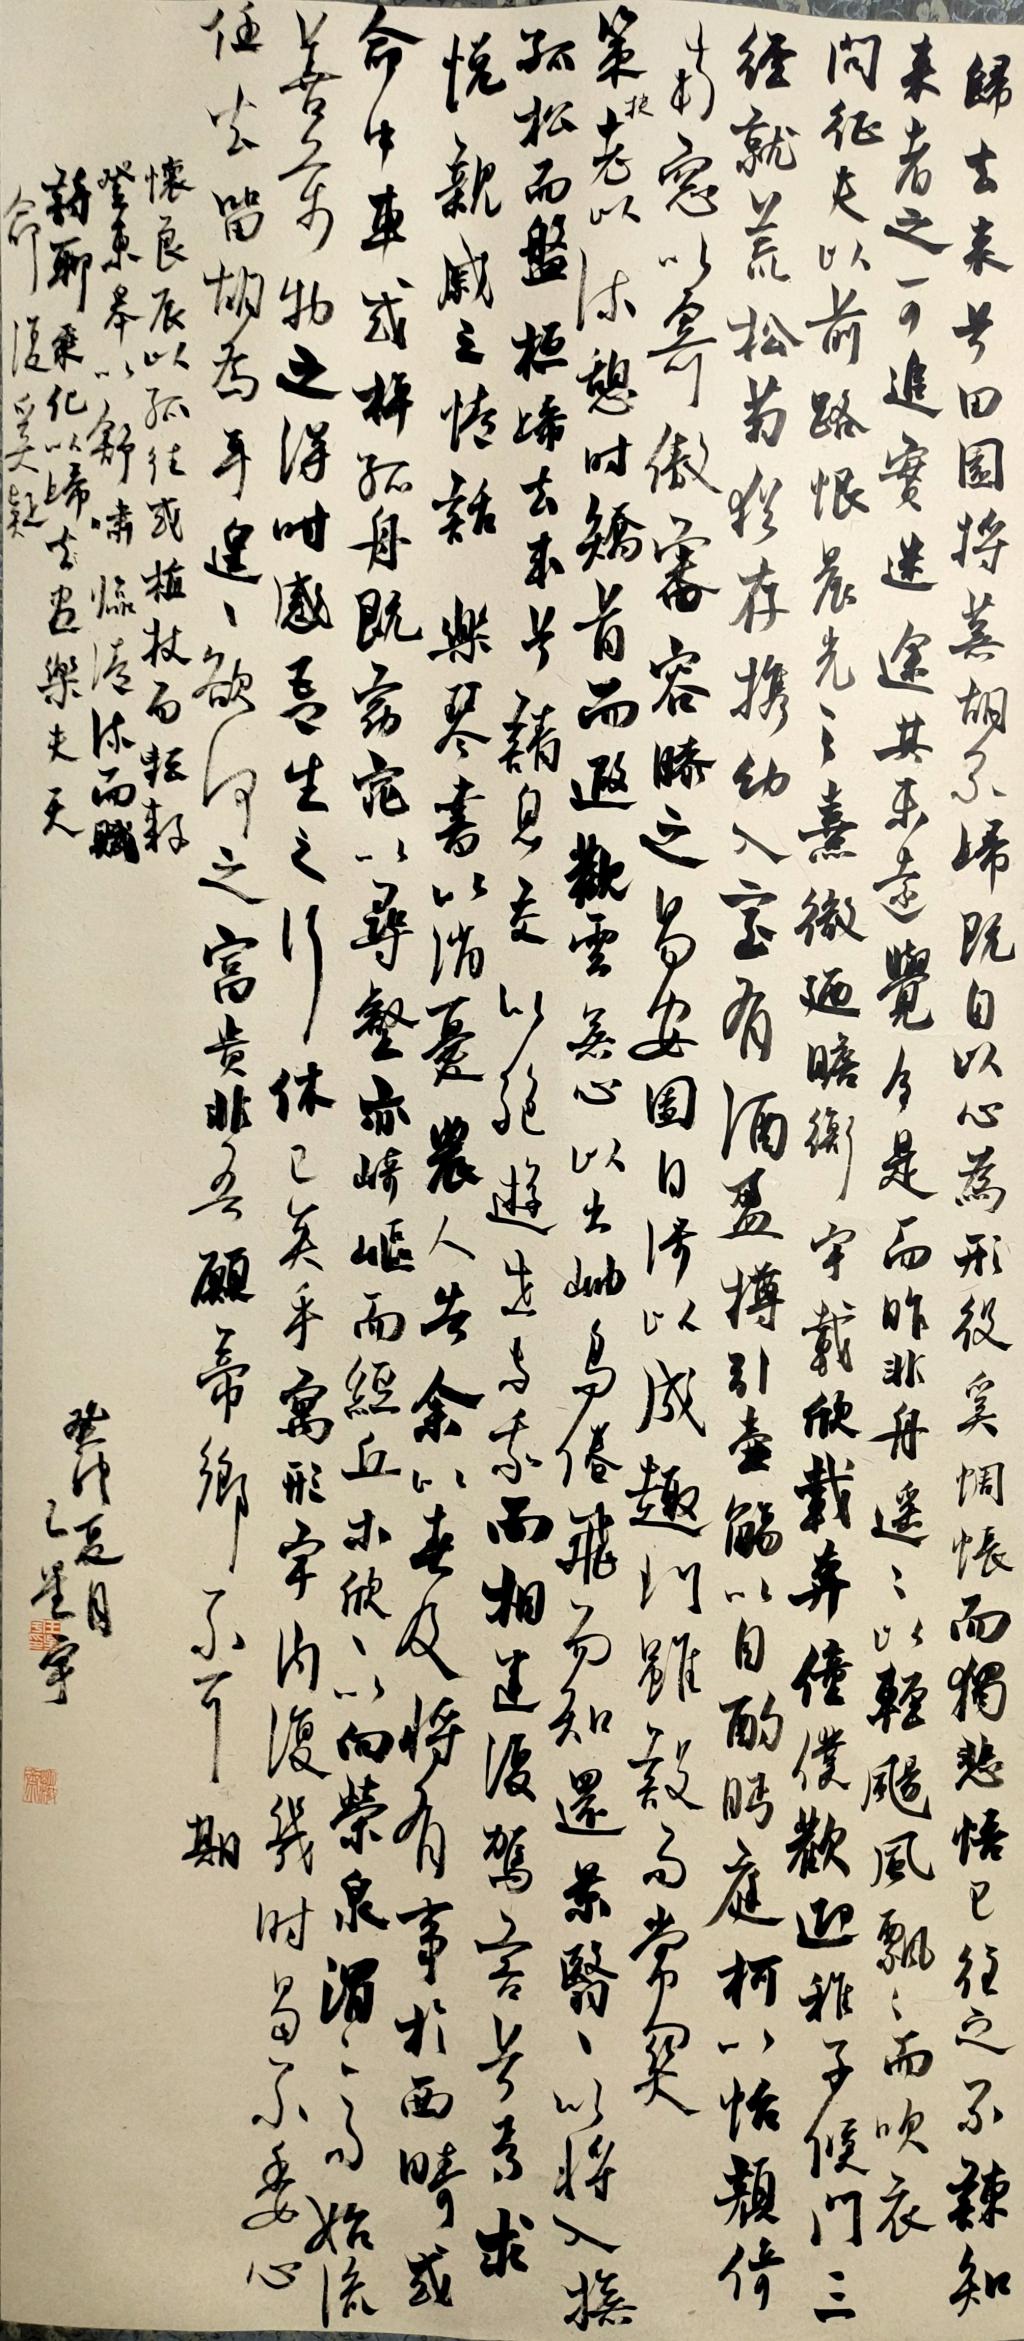 歸去来兮田園將蕪胡不歸既自以心為形役奚惆悵而獨悲悟已往之不諫知
来者之可追實迷途其未遠覺今是而昨非舟遥〻以輕颺風飄〻而吹衣
问征夫以前路恨晨光之熹微廼瞻衡宇載欣載奔僮僕歡迎稚子候門三
徑就荒松菊猶存携幼入室有酒盈樽引壺觴以自酌眄庭柯以怡顏倚
南窓以寄傲審容膝之易安園日涉以成趣門雖設而常関
策扶老以流憩时矯首而遐觀雲無心以出岫鳥倦飛而知還景翳〻以將入撫
孤松而盤桓歸去来兮請息交以絶遊世与我而相遺復駕言兮焉求
悦親戚之情話樂琴書以消憂農人告余以春及將有事於西疇或
命巾車或棹孤舟既窈窕以尋壑亦崎嶇而經丘木欣〻以向榮泉涓〻而始流
善萬物之得时感吾生之行休已矣乎寓形宇内復幾时曷不委心
任去留胡為乎遑〻欲何之富貴非吾願帝鄉不可期
懷良辰以孤往或植杖而耘耔
登東皋以舒嘯臨清流而賦
詩聊乗化以歸去盡樂夫天
命復奚疑
癸卯夏月
星宇